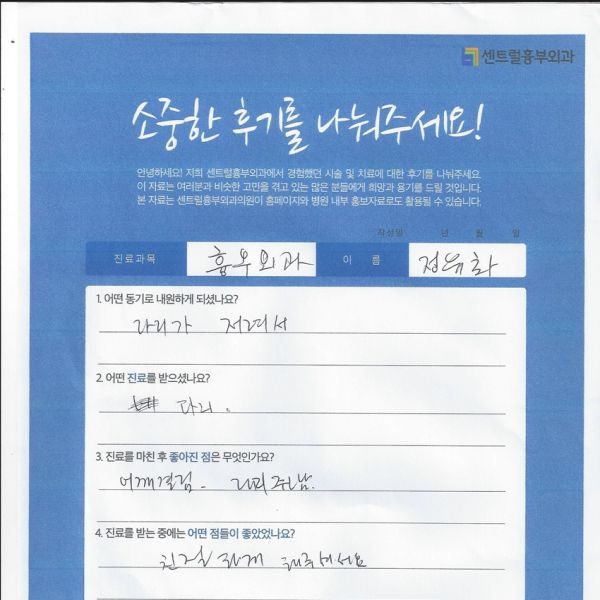 센트럴흉부외과
소중한 후기를 나눠주세요!
안녕하세요! 저희 센트럴흉부외과에서 경험했던 시술 및 치료에 대한 후기를 나눠주세요.
이 자료는 여러분과 비슷한 고민을 겪고 있는 많은 분들에게 희망과 용기를 드릴 것입니다.
본 자료는 센트럴흉부외과의원이 홈페이지와 병원 내부 홍보자료로도 활용될 수 있습니다.
작성일 년 월 일
진료과목 흉부외과 이 름 정유화
1. 어떤 동기로 내원하게 되셨나요?
다리가 저려서
2. 어떤 진료를 받으셨나요?
다리.
3. 진료를 마친 후 좋아진 점은 무엇인가요?
어깨결림.
4. 진료를 받는 중에는 어떤 점들이 좋았었나요?
친절하게 해주셔서요